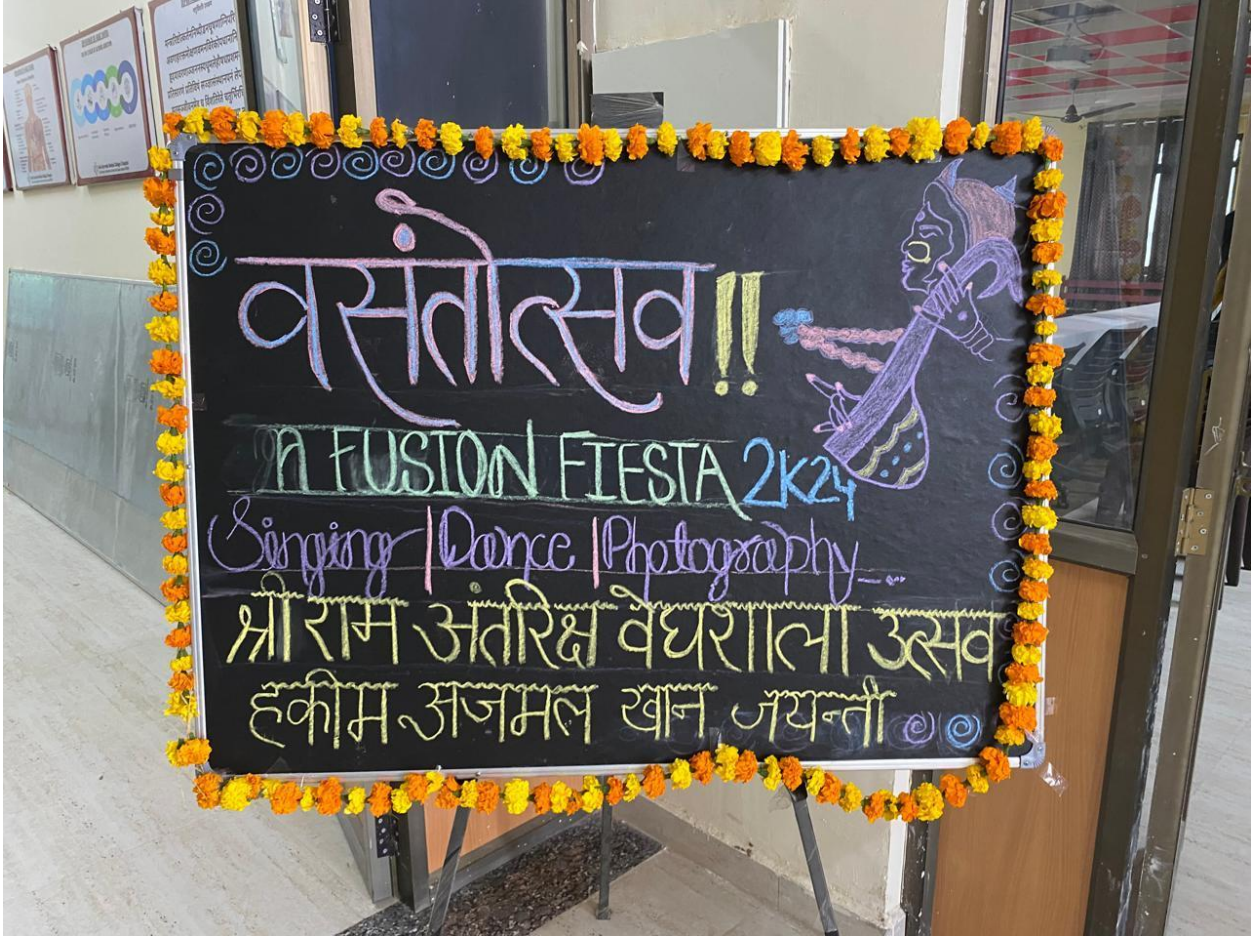 वसंतोत्सव!!
A FUSION FIESTA 2K24
Singing | Dance | Photography...
श्री राम अंतरिक्ष वेधशाला उत्सव
हकीम अजमल खान जयन्ती